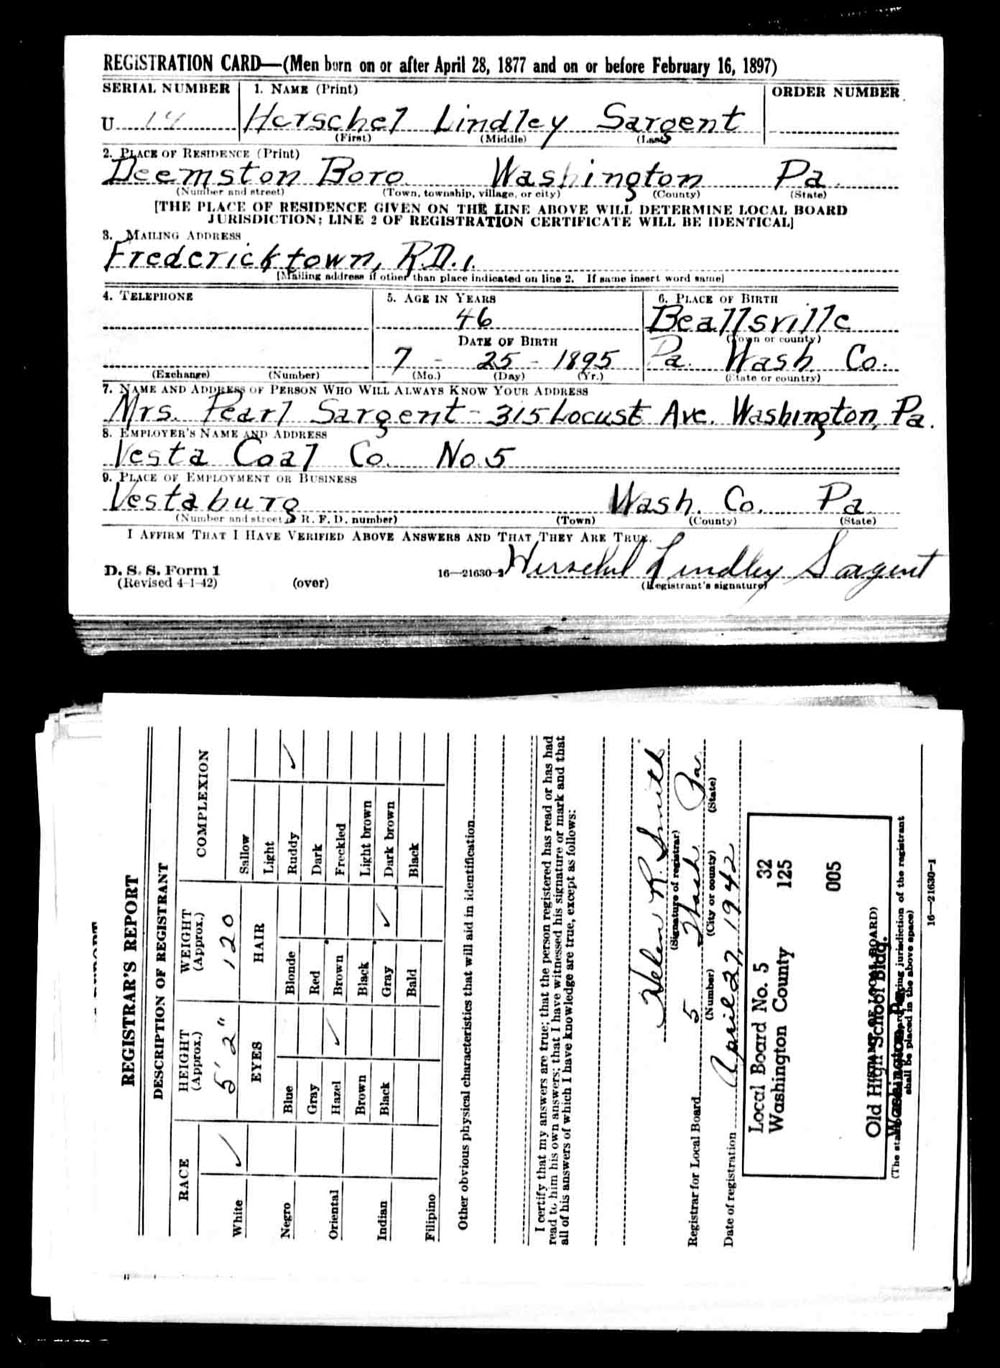 REGISTRATION CARD—(Men born on or after April 28, 1877 and on or before February 16, 1897)
SERIAL NUMBER 1. NAME (Print) ORDER NUMBER
U 14 Herschel Lindley Sargent
(First) (Middle) (Last)
2. PLACE OF RESIDENCE (Print)
Deemston Boro Washington Pa
(Number and street) (Town, township, village, or city) (County) (State)
[THE PLACE OF RESIDENCE GIVEN ON THE LINE ABOVE WILL DETERMINE LOCAL BOARD
JURISDICTION; LINE 2 OF REGISTRATION CERTIFICATE WILL BE IDENTICAL]
3. MAILING ADDRESS
Fredericktown, R.D.1.
[Mailing address if other than place indicated on line 2. If same insert word same]
4. TELEPHONE 5. AGE IN YEARS 6. PLACE OF BIRTH
46 Beallsville
DATE OF BIRTH (Town or county)
7 - 25 - 1895 Pa. Wash Co.
(Exchange) (Number) (Mo.) (Day) (Yr.) (State or country)
7. NAME AND ADDRESS OF PERSON WHO WILL ALWAYS KNOW YOUR ADDRESS
Mrs. Pearl Sargent - 315 Locust Ave. Washington, Pa.
8. EMPLOYER'S NAME AND ADDRESS
Vesta Coal Co. No. 5
9. PLACE OF EMPLOYMENT OR BUSINESS
Vestaburg Wash. Co. Pa
(Number and street or R. F. D. number) (Town) (County) (State)
I AFFIRM THAT I HAVE VERIFIED ABOVE ANSWERS AND THAT THEY ARE TRUE.
D. S. S. Form 1
(Revised 4-1-42) (over) 16—21630-2 Herschel Lindley Sargent
(Registrant's signature)
REGISTRAR'S REPORT
DESCRIPTION OF REGISTRANT
RACE HEIGHT (Approx.) WEIGHT (Approx.) COMPLEXION
White ✓ 5' 2" 120 Sallow
EYES HAIR Light
Negro Blue Blonde Ruddy ✓
Gray Red Dark
Oriental Hazel ✓ Brown Freckled
Brown Black Light brown
Indian Black Gray ✓ Dark brown
Filipino Bald Black
Other obvious physical characteristics that will aid in identification
I certify that my answers are true; that the person registered has read or has had
read to him his own answers; that I have witnessed his signature or mark and that
all of his answers of which I have knowledge are true, except as follows:
Helen R. Smith
(Signature of registrar)
Registrar for Local Board 5 Wash Pa
(Number) (City or county) (State)
Date of registration April 27, 1942
Local Board No. 5 32
Washington County 125
005
Old High School Bldg.
Washington, Pa.
(STAMP OF LOCAL BOARD)
(The stamp of the Local Board having jurisdiction of the registrant
shall be placed in the above space)
16—21630-1